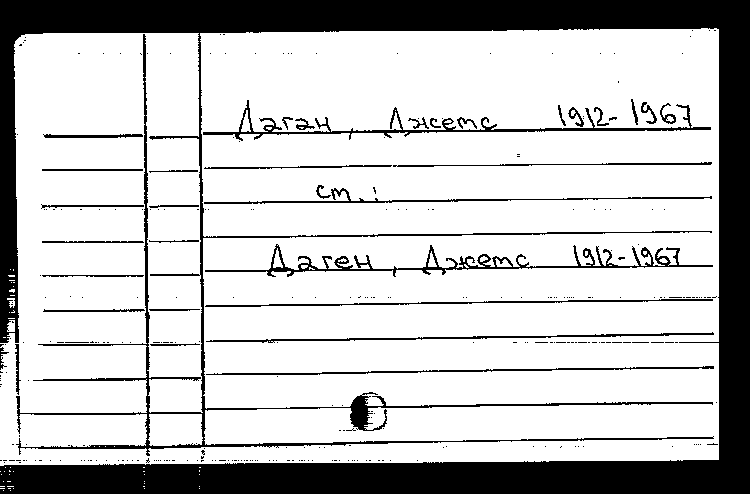 Даган, Джемс 1912-1967
см.:
Даген, Джемс 1912-1967